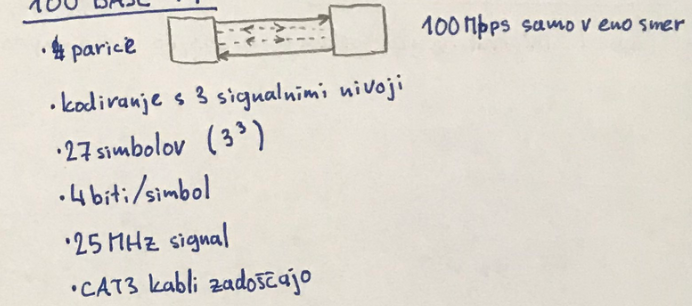 100 BASE
100 Mbps samo v eno smer
· 4 parice
· kodiranje s 3 signalnimi nivoji
· 27 simbolov (3³)
· 4 biti/simbol
· 25 MHz signal
· CAT3 kabli zadoščajo